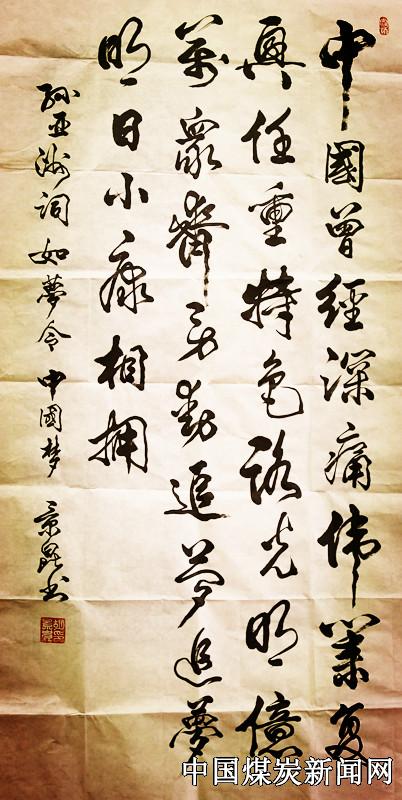 中國曾經深痛偉業复
興任重特色路光明億
萬眾齊劳動追夢追夢
明日小康相拥
孫亞洲詞如夢令中國梦 景昆书
中国煤炭新闻网